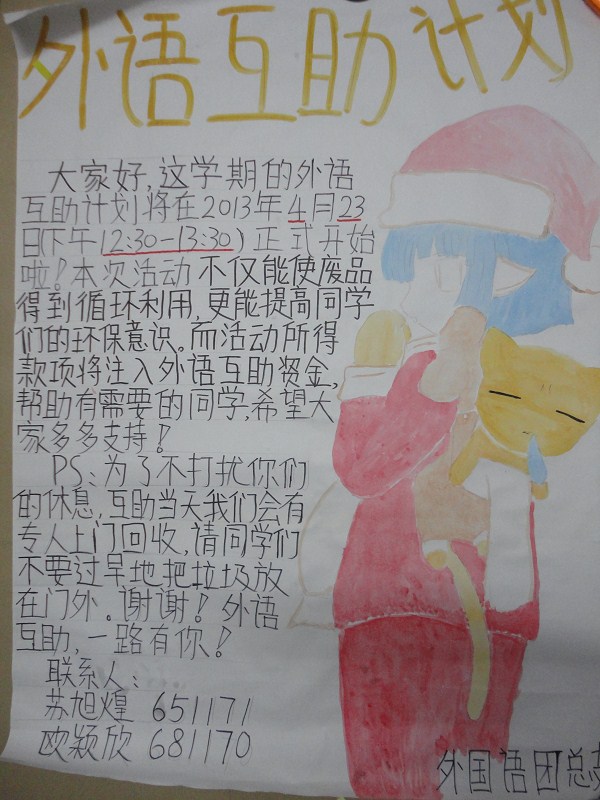 外语互助计划
大家好,这学期的外语
互助计划将在2013年4月23
日(下午12:30-13:30)正式开始
啦!本次活动不仅能使废品
得到循环利用,更能提高同学
们的环保意识。而活动所得
款项将注入外语互助资金,
帮助有需要的同学,希望大
家多多支持!
PS:为了不打扰你们
的休息,互助当天我们会有
专人上门回收,请同学们
不要过早地把垃圾放
在门外。谢谢!外语
互助,一路有你!
联系人:
苏旭煌 651171
欧颖欣 681170
外国语团总